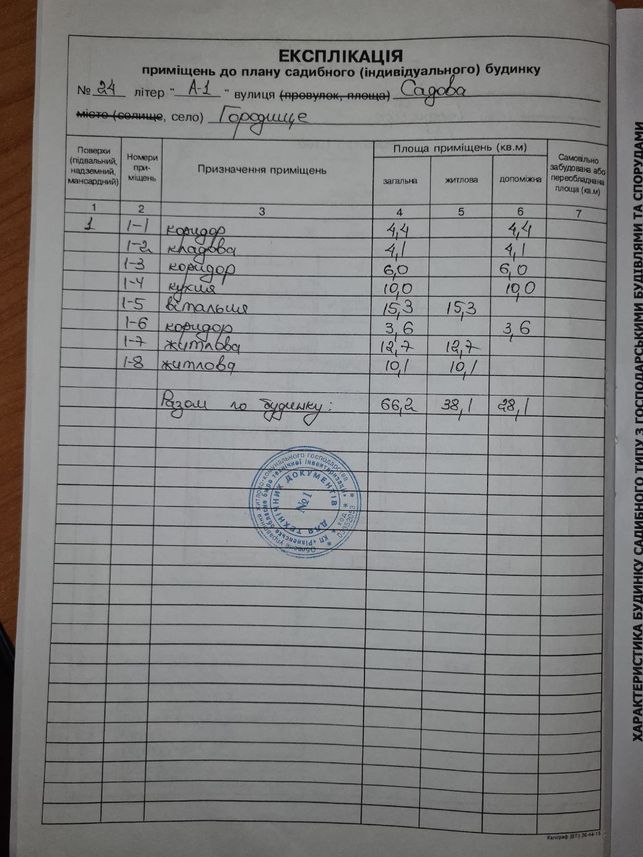 ЕКСПЛІКАЦІЯ
приміщень до плану садибного (індивідуального) будинку
№ 24 літер " А-1 " вулиця (провулок, площа) Садова
місто (селище, село) Городище
Поверхи (підвальний, надземний, мансардний) Номери при- міщень Призначення приміщень Площа приміщень (кв.м) Самовільно забудована або переобладнана площа (кв.м)
загальна житлова допоміжна
1 2 3 4 5 6 7
1 1-1 коридор 4,4 4,4
1-2 кладова 4,1 4,1
1-3 коридор 6,0 6,0
1-4 кухня 10,0 10,0
1-5 вітальня 15,3 15,3
1-6 коридор 3,6 3,6
1-7 житлова 12,7 12,7
1-8 житлова 10,1 10,1
Разом по будинку: 66,2 38,1 28,1
ДЛЯ ТЕХНІЧНИХ ДОКУМЕНТІВ
№1
ХАРАКТЕРИСТИКА БУДИНКУ САДИБНОГО ТИПУ З ГОСПОДАРСЬКИМИ БУДІВЛЯМИ ТА СПОРУДАМИ